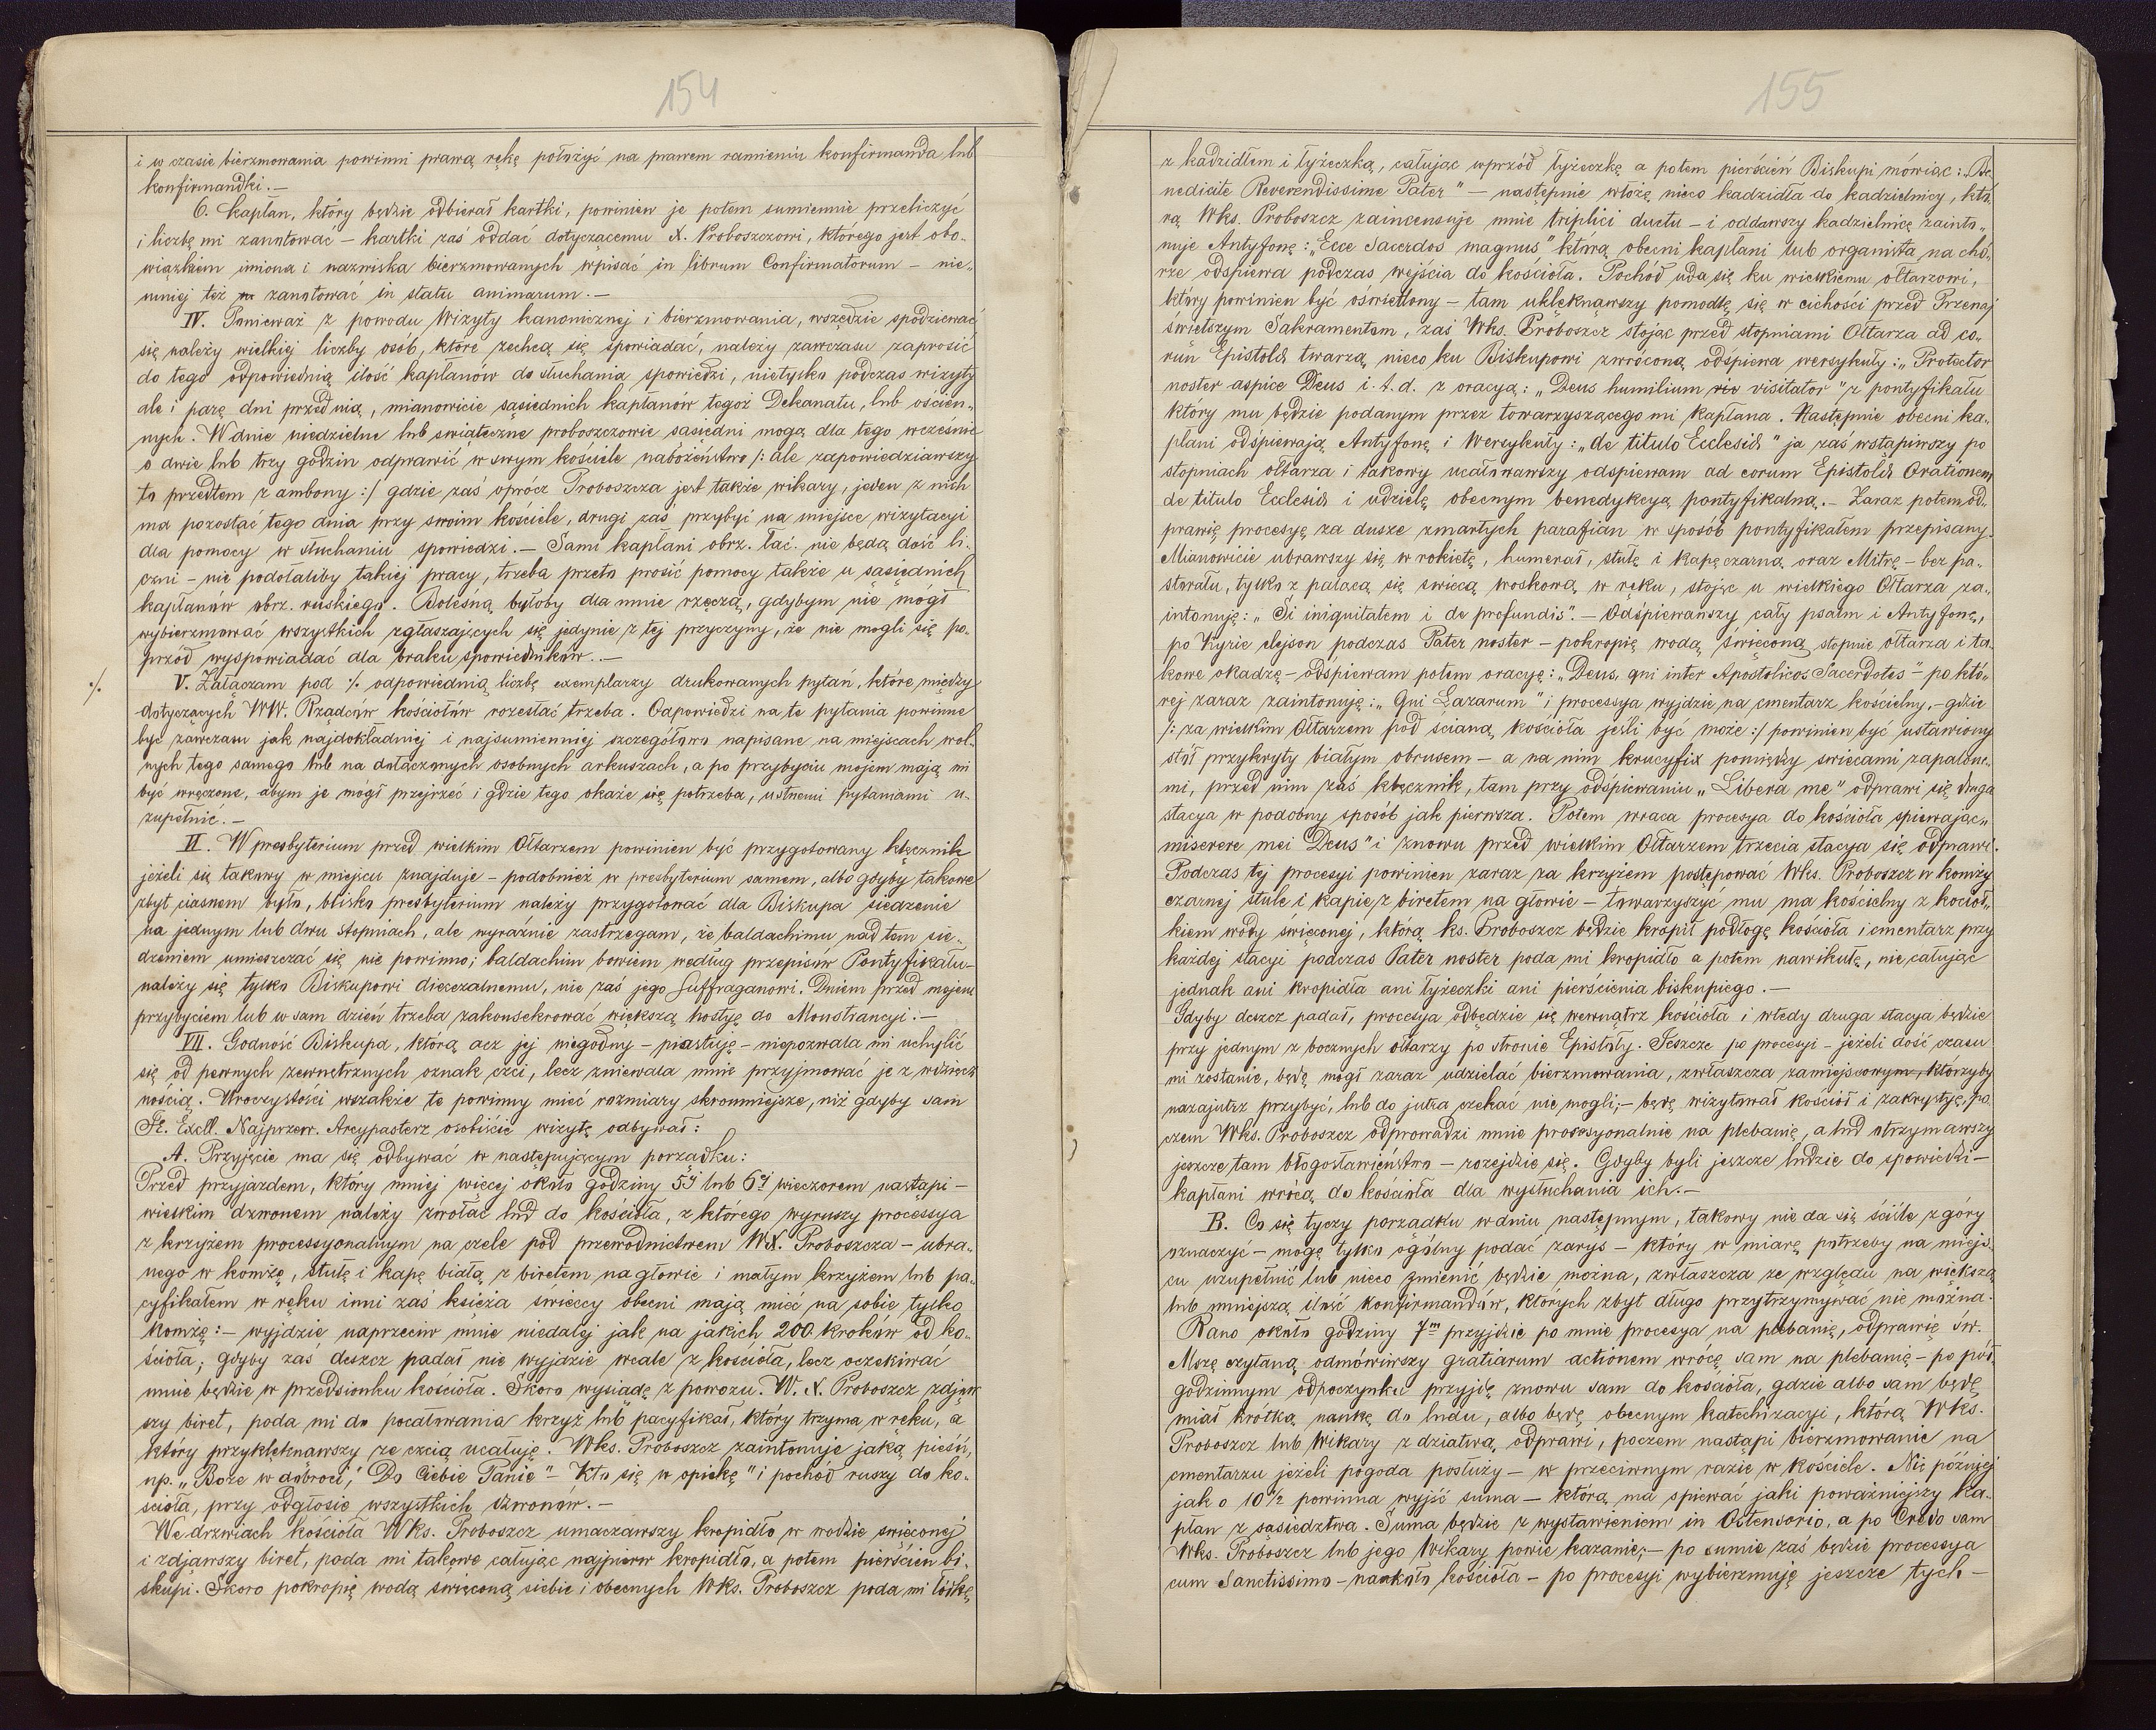 154
i w czasie bierzmowania powinni prawą rękę położyć na prawem ramieniu konfirmanda lub
konfirmandki. —
6. Kapłan, który będzie odbierał kartki, powinien je potem sumiennie przeliczyć
i liczbę mi zanotować — kartki zaś oddać dotyczącemu X. Proboszczowi, którego jest obo-
wiązkiem imiona i nazwiska bierzmowanych wpisać in librum Confirmatorum — nie-
mniej też zanotować in statu animarum. —
IV. Ponieważ z powodu Wizyty kanonicznej i bierzmowania, wszędzie spodziewać
się należy wielkiej liczby osób, które zechcą się spowiadać, należy zawczasu zaprosić
do tego odpowiednią ilość kapłanów do słuchania spowiedzi, nietylko podczas wizyty
ale i parę dni przed nią, mianowicie sąsiednich kapłanów tegoż Dekanatu, lub ościen-
nych. W dnie niedzielne lub świąteczne proboszczowie sąsiedni mogą dla tego wcześnie
o dwie lub trzy godzin odprawić w swym kościele nabożeństwo /: ale zapowiedziawszy
to przedtem z ambony :/ gdzie zaś oprócz Proboszcza jest także wikary, jeden z nich
ma pozostać tego dnia przy swoim kościele, drugi zaś przybyć na miejsce wizytacyi
dla pomocy w słuchaniu spowiedzi. — Sami kapłani obrz. łać. nie będą dość li-
czni — nie podołaliby takiej pracy, trzeba przeto prosić pomocy także u sąsiednich
kapłanów obrz. ruskiego. Bolesną byłoby dla mnie rzeczą, gdybym nie mógł
wybierzmować wszystkich zgłaszających się jedynie z tej przyczyny, że nie mogli się po-
przód wyspowiadać dla braku spowiedników. —
·/. V. Załączam pod ·/. odpowiednią liczbę exemplarzy drukowanych pytań, które między
dotyczących WW. Rządców kościołów rozesłać trzeba. Odpowiedzi na te pytania powinne
być zawczasu jak najdokładniej i najsumienniej szczegółowo napisane na miejscach wol-
nych tego samego lub na dołączonych osobnych arkuszach, a po przybyciu mojem mają mi
być wręczone, abym je mógł przejrzeć i gdzie tego okaże się potrzeba, ustnemi pytaniami u-
zupełnić. —
VI. W presbyterium przed wielkim Ołtarzem powinien być przygotowany klęcznik
jeżeli się takowy w miejscu znajduje — podobnież w presbyterium samem, albo gdyby takowe
zbyt ciasnem było, blisko presbyterium należy przygotować dla Biskupa siedzenie
na jednym lub dwu stopniach, ale wyraźnie zastrzegam, że baldachimu nad tem sie-
dzeniem umieszczać się nie powinno; baldachim bowiem według przepisów Pontyfikału-
należy się tylko Biskupowi diecezalnemu, nie zaś jego Suffraganowi. Dniem przed mojem
przybyciem lub w sam dzień trzeba zakonsekrować większą hostyę do Monstrancyi. —
VII. Godność Biskupa, którą acz jej niegodny — piastuję — niepozwala mi uchylić
się od pewnych zewnętrznych oznak czci, lecz zniewala mnie przyjmować je z wdzięcz
nością. Uroczystości wszakże te powinny mieć rozmiary skromniejsze, niż gdyby sam
Je. Excll. Najprzew. Arcypasterz osobiście wizytę odbywał:
A. Przyjęcie ma się odbywać w następującym porządku:
Przed przyjazdem, który mniej więcej około godziny 5ej lub 6ej wieczorem nastąpi —
wielkim dzwonem należy zwołać lud do kościoła, z którego wyruszy processya
z krzyżem processyonalnym na czele pod przewodnictwem WX. Proboszcza — ubra-
nego w komżę, stułę i kapę białą z biretem na głowie i małym krzyżem lub pa-
cyfikałem w ręku inni zaś księża świeccy obecni mają mieć na sobie tylko
komżę: — wyjdzie naprzeciw mnie niedalej jak na jakich 200 kroków od ko-
ścioła; gdyby zaś deszcz padał nie wyjdzie wcale z kościoła, lecz oczekiwać
mnie będzie w przedsionku kościoła. Skoro wysiadę z powozu. W. X. Proboszcz zdjąw
szy biret, poda mi do pocałowania krzyż lub pacyfikał, który trzyma w ręku, a
który przyklęknawszy ze czcią ucałuję. Wks. Proboszcz zaintonuje jaką pieśń,
np. „Boże w dobroci," Do Ciebie Panie" — Kto się w opiekę" i pochód ruszy do ko-
ścioła, przy odgłosie wszystkich dzwonów. —
We drzwiach kościoła Wks. Proboszcz umaczawszy kropidło w wodzie święconej
i zdjąwszy biret, poda mi takowe całując najpierw kropidło, a potem pierścień bi-
skupi. Skoro pokropię wodą święconą siebie i obecnych Wks. Proboszcz poda mi łódkę
155
z kadzidłem i łyżeczką, całując wprzód łyżeczkę a potem pierścień Biskupi mówiąc: „Be-
nedicite Reverendissime Pater" — następnie włożę nieco kadzidła do kadzielnicy, któ-
rą Wks. Proboszcz zaincensuje mnie triplici ductu — i oddawszy kadzielnicę zainto-
nuje Antyfonę: „Ecce Sacerdos magnus" którą obecni kapłani lub organista na chó-
rze odśpiewa podczas wejścia do kościoła. Pochód uda się ku wielkiemu ołtarzowi,
który powinien być oświetlony — tam uklęknąwszy pomodlę się w cichości przed Przenaj
świętszym Sakramentem, zaś Wks. Proboszcz stojąc przed stopniami Ołtarza ad co-
run Epistolæ twarzą nieco ku Biskupowi zwróconą odśpiewa wersykuły: „Protector
noster aspice Deus i. t. d. z oracyą: „Deus humilium visitator" z pontyfikału
który mu będzie podanym przez towarzyszącego mi Kapłana. Następnie obecni ka-
płani odśpiewają Antyfonę i Wersykuły: „de titulo Ecclesiæ" ja zaś wstąpiwszy po
stopniach ołtarza i takowy ucałowawszy odśpiewam ad corum Epistolæ Orationem
de titulo Ecclesiæ i udzielę obecnym benedykcyą pontyfikalną. — Zaraz potem od-
prawię procesyę za dusze zmarłych parafian w sposób pontyfikałem przepisany.
Mianowicie ubrawszy się w rokietę, humerał, stułę i kapę czarną oraz Mitrę — bez pa-
storału, tylko z palącą się świecą woskową w ręku, stojąc u wielkiego Ołtarza za-
intonuję: „Si iniquitatem i de profundis". — Odśpiewawszy cały psalm i Antyfonę,
po Kyrie elejson podczas Pater noster — pokropię wodą święconą stopnie ołtarza i ta-
kowe okadzę — odśpiewam potem oracyę: „Deus, qui inter Apostolicos Sacerdotes" — po któ-
rej zaraz zaintonuję: „Qui Lazarum" i processya wyjdzie na cmentarz kościelny, — gdzie
/: za wielkim Ołtarzem pod ścianą kościoła jeśli być może :/ powinien być ustawiony
stół przykryty białym obrusem — a na nim krucyfix pomiędzy świecami zapalone-
mi, przed nim zaś klęcznik, tam przy odśpiewaniu „Libera me" odprawi się druga
stacya w podobny sposób jak pierwsza. Potem wraca procesya do kościoła śpiewając „
miserere mei Deus" i znowu przed wielkim Ołtarzem trzecia stacya się odprawi.
Podczas tej procesyi powinien zaraz za krzyżem postępować Wks. Proboszcz w komży
czarnej stule i kapie z biretem na głowie — towarzyszyć mu ma kościelny z kocioł-
kiem wody święconej, którą ks. Proboszcz będzie kropił podłogę kościoła i cmentarz przy
każdej stacyi podczas Pater noster poda mi kropidło a potem nawikułę, nie całując
jednak ani kropidła ani łyżeczki ani pierścienia biskupiego. —
Gdyby deszcz padał, procesya odbędzie się wewnątrz kościoła i wtedy druga stacya będzie
przy jednym z bocznych ołtarzy po stronie Epistoły. Jeszcze po procesyi — jeżeli dość czasu
mi zostanie, będę mógł zaraz udzielać bierzmowania, zwłaszcza zamiejscowym, którzyby
nazajutrz przybyć, lub do jutra czekać nie mogli; — będę wizytował kościół i zakrystyę, po
czem Wks. Proboszcz odprowadzi mnie procesyonalnie na plebanię, a lud otrzymawszy
jeszcze tam błogosławieństwo — rozejdzie się. Gdyby byli jeszcze ludzie do spowiedzi —
kapłani wrócą do kościoła dla wysłuchania ich. —
B. Co się tyczy porządku w dniu następnym, takowy nie da się ściśle z góry
oznaczyć — mogę tylko ogólny podać zarys — który w miarę potrzeby na miejs-
cu uzupełnić lub nieco zmienić będzie można, zwłaszcza ze względu na większą
lub mniejszą ilość Konfirmandów, których zbyt długo przytrzymywać nie można.
Rano około godziny 7m przyjdzie po mnie procesya na plebanię, odprawię św.
Mszę czytaną odmówiwszy gratiarum actionem wrócę sam na plebanię — po pół
godzinnym odpoczynku przyjdę znowu sam do kościoła, gdzie albo sam będę
miał krótką naukę do ludu, albo będę obecnym katechizacyi, którą Wks.
Proboszcz lub Wikary z dziatwą odprawi, poczem nastąpi bierzmowanie na
cmentarzu jeżeli pogoda posłuży — w przeciwnym razie w kościele. Nie później
jak o 10½ powinna wyjść suma — którą ma śpiewać jaki poważniejszy ka-
płan z sąsiedztwa. Suma będzie z wystawieniem in Ostensorio, a po Credo sam
Wks. Proboszcz lub jego Wikary powie kazanie; — po sumie zaś będzie processya
cum Sanctissimo — naokoło kościoła — po procesyi wybierzmuję jeszcze tych —